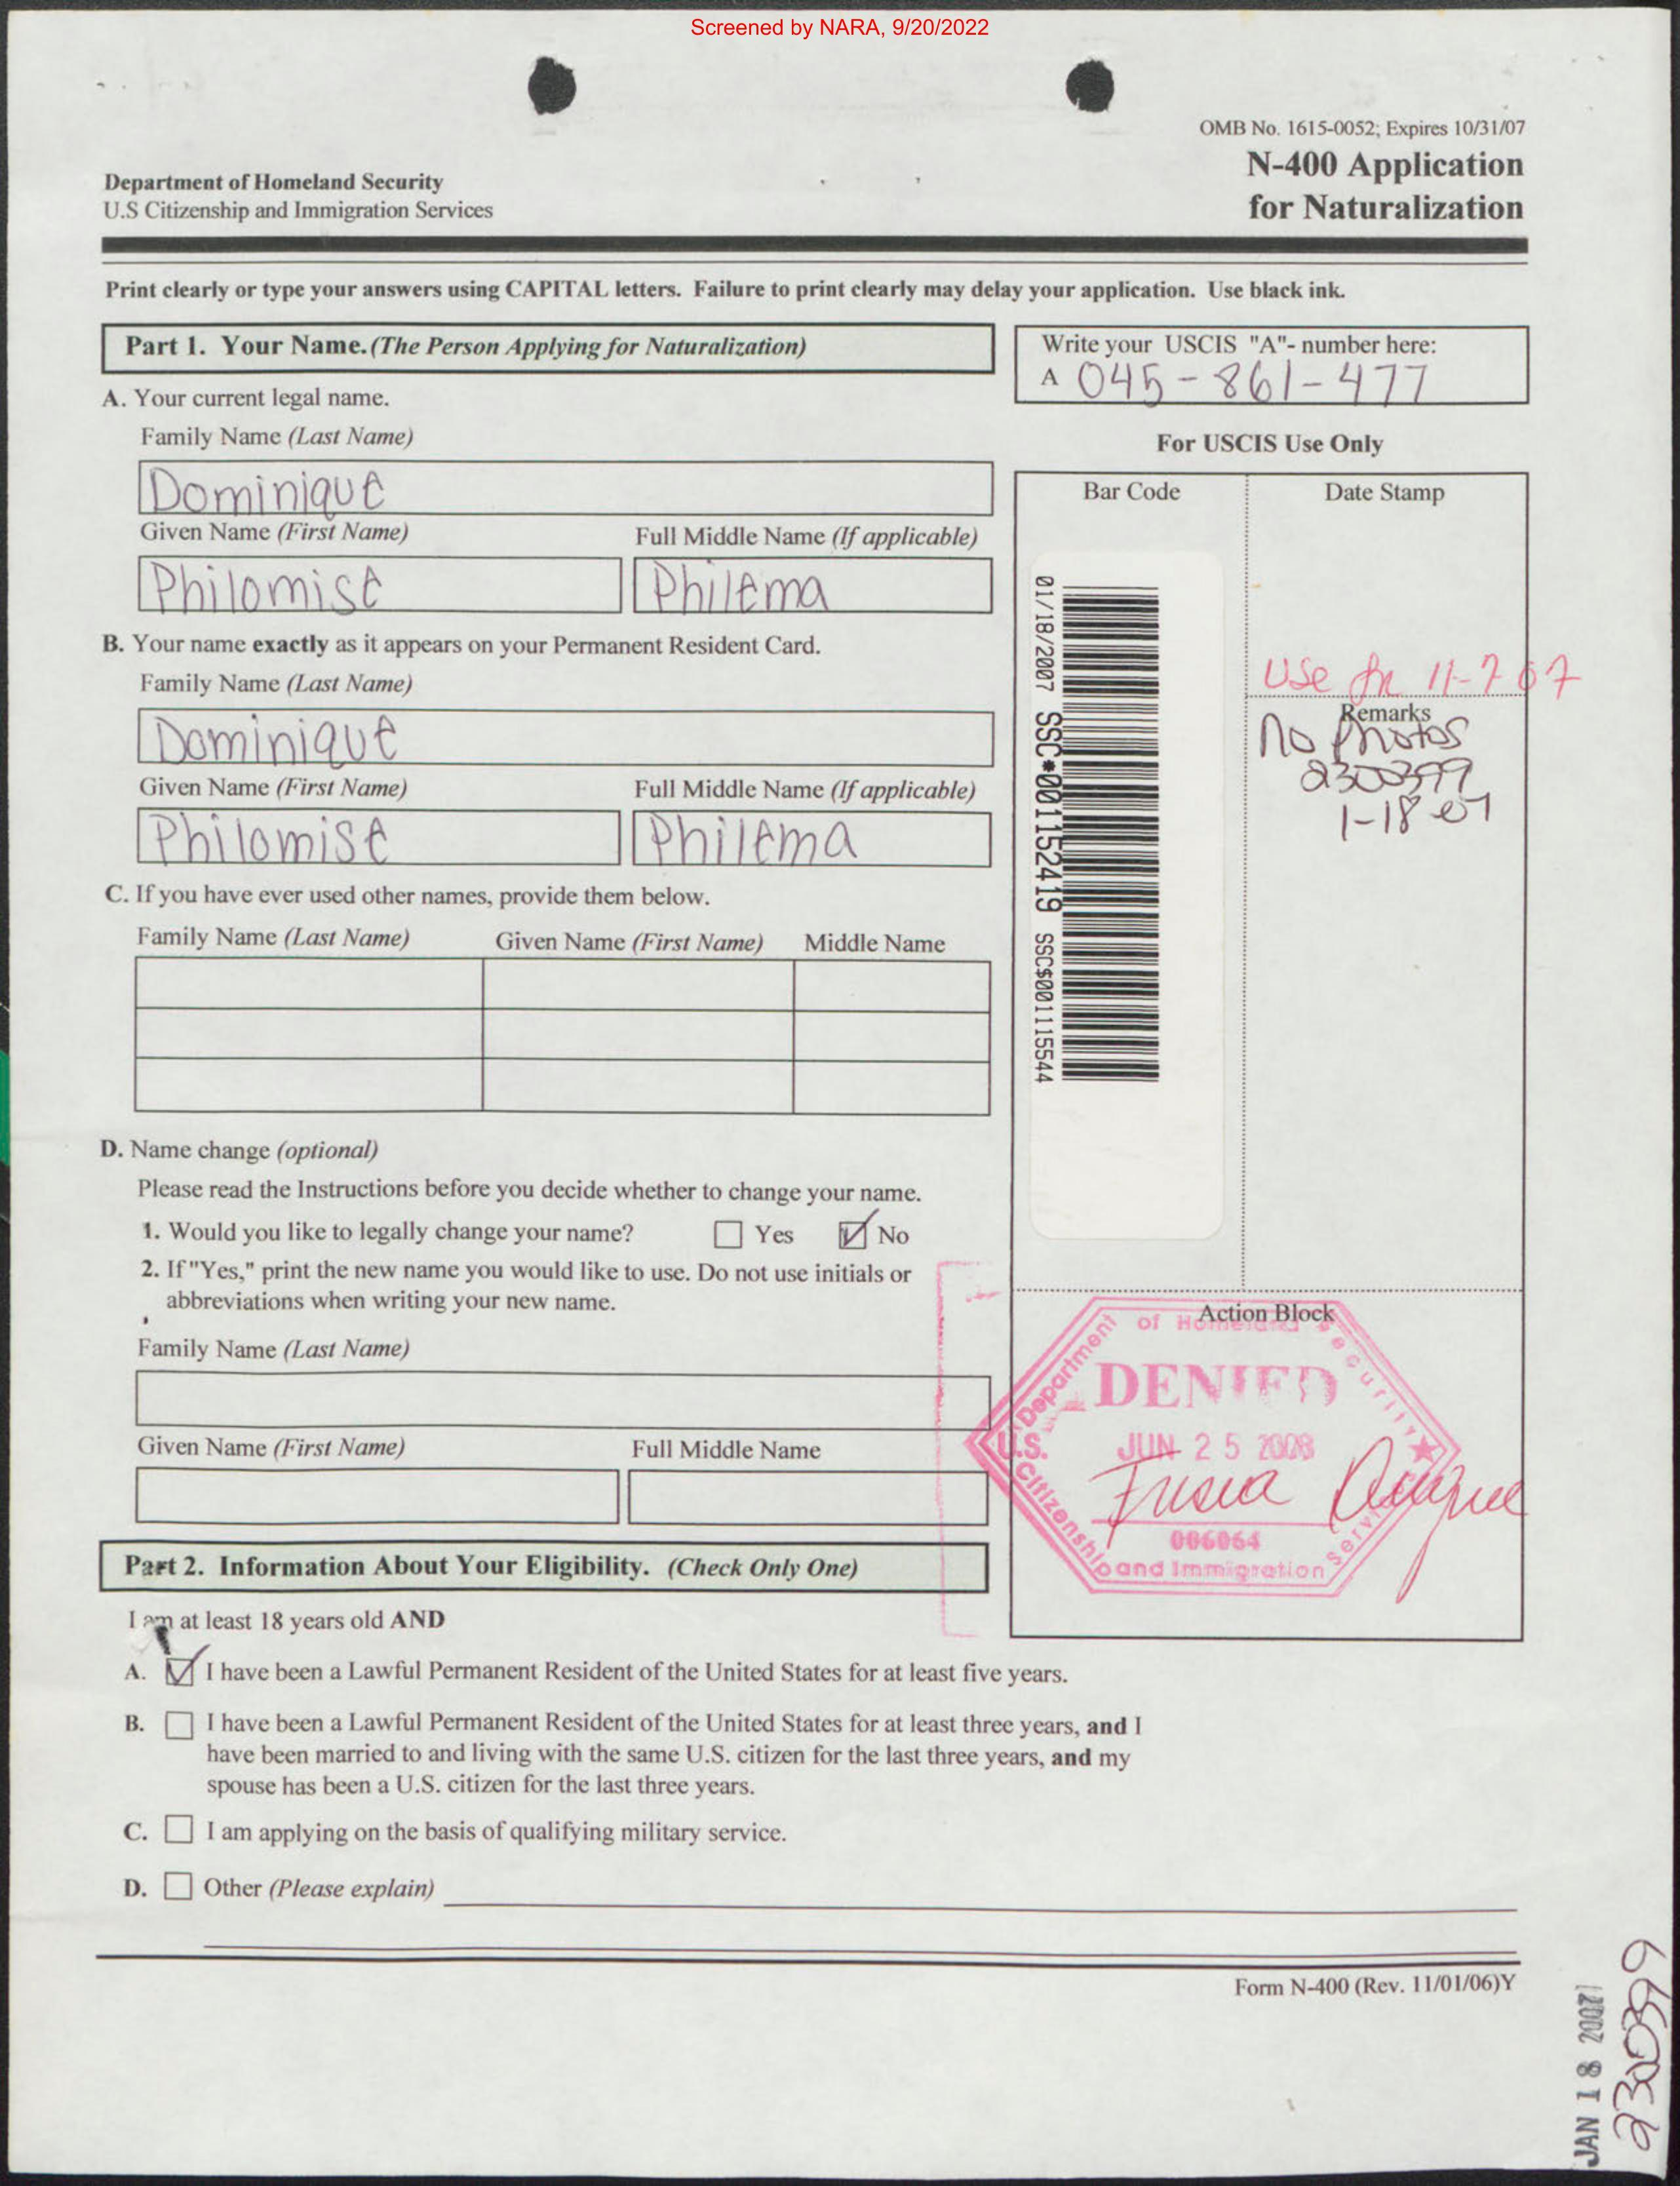 Screened by NARA, 9/20/2022
OMB No. 1615-0052; Expires 10/31/07
N-400 Application
for Naturalization
Department of Homeland Security
U.S Citizenship and Immigration Services
Print clearly or type your answers using CAPITAL letters. Failure to print clearly may delay your application. Use black ink.
Part 1. Your Name. (The Person Applying for Naturalization)
Write your USCIS "A"- number here:
A 045-861-477
A. Your current legal name.
Family Name (Last Name)
Dominique
Given Name (First Name) Full Middle Name (If applicable)
Philomise Philema
B. Your name exactly as it appears on your Permanent Resident Card.
Family Name (Last Name)
Dominique
Given Name (First Name) Full Middle Name (If applicable)
Philomise Philema
C. If you have ever used other names, provide them below.
Family Name (Last Name) Given Name (First Name) Middle Name
D. Name change (optional)
Please read the Instructions before you decide whether to change your name.
1. Would you like to legally change your name? Yes No
2. If "Yes," print the new name you would like to use. Do not use initials or
abbreviations when writing your new name.
Family Name (Last Name)
Given Name (First Name) Full Middle Name
For USCIS Use Only
Bar Code Date Stamp
01/18/2007 SSC*001152419 SSC$001115544
Use 11-7 07
Remarks
No Photos
230399
1-18-07
Action Block
U.S. Department of Homeland Security
DENIED
JUN 25 2008
006064
Citizenship and Immigration Services
Part 2. Information About Your Eligibility. (Check Only One)
I am at least 18 years old AND
A. I have been a Lawful Permanent Resident of the United States for at least five years.
B. I have been a Lawful Permanent Resident of the United States for at least three years, and I
have been married to and living with the same U.S. citizen for the last three years, and my
spouse has been a U.S. citizen for the last three years.
C. I am applying on the basis of qualifying military service.
D. Other (Please explain)
Form N-400 (Rev. 11/01/06)Y
JAN 18 2007
230399